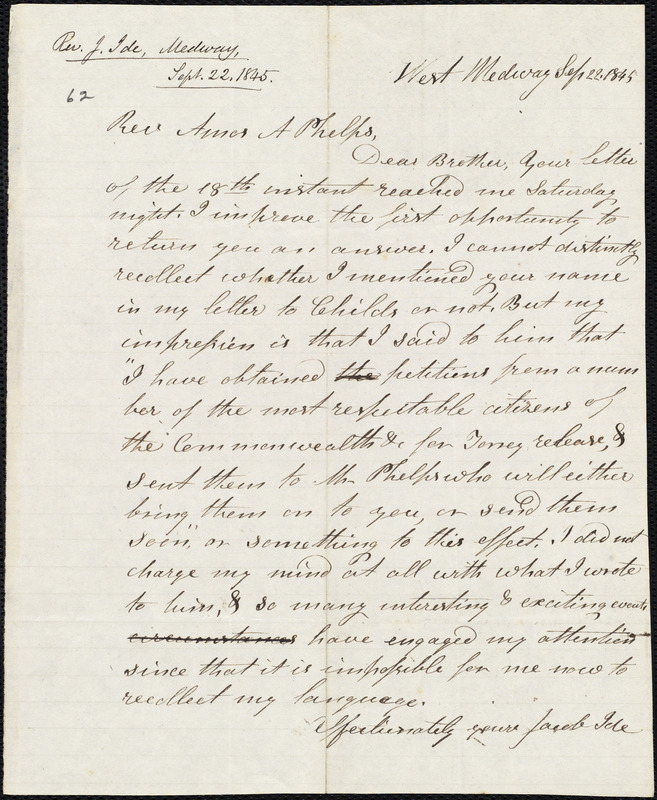 Rev. J. Ide, Medway,
Sept. 22. 1845.
62
West Medway Sep 22. 1845
Rev Amos A Phelps,
Dear Brother, Your letter
of the 18th instant reached me Saturday
night. I improve the first opportunity to
return you an answer. I cannot distinctly
recollect whether I mentioned your name
in my letter to Childs or not. But my
impression is that I said to him that
"I have obtained the petitions from a num
ber of the most respectable citizens of
the Commonwealth &c for Torrey release, &
sent them to Mr Phelps who will either
bring them on to you, or send them
soon", or something to this effect. I did not
charge my mind at all with what I wrote
to him, & so many interesting & exciting events
circumstances have engaged my attention
since that it is impossible for me now to
recollect my language.
Affectionately yours Jacob Ide